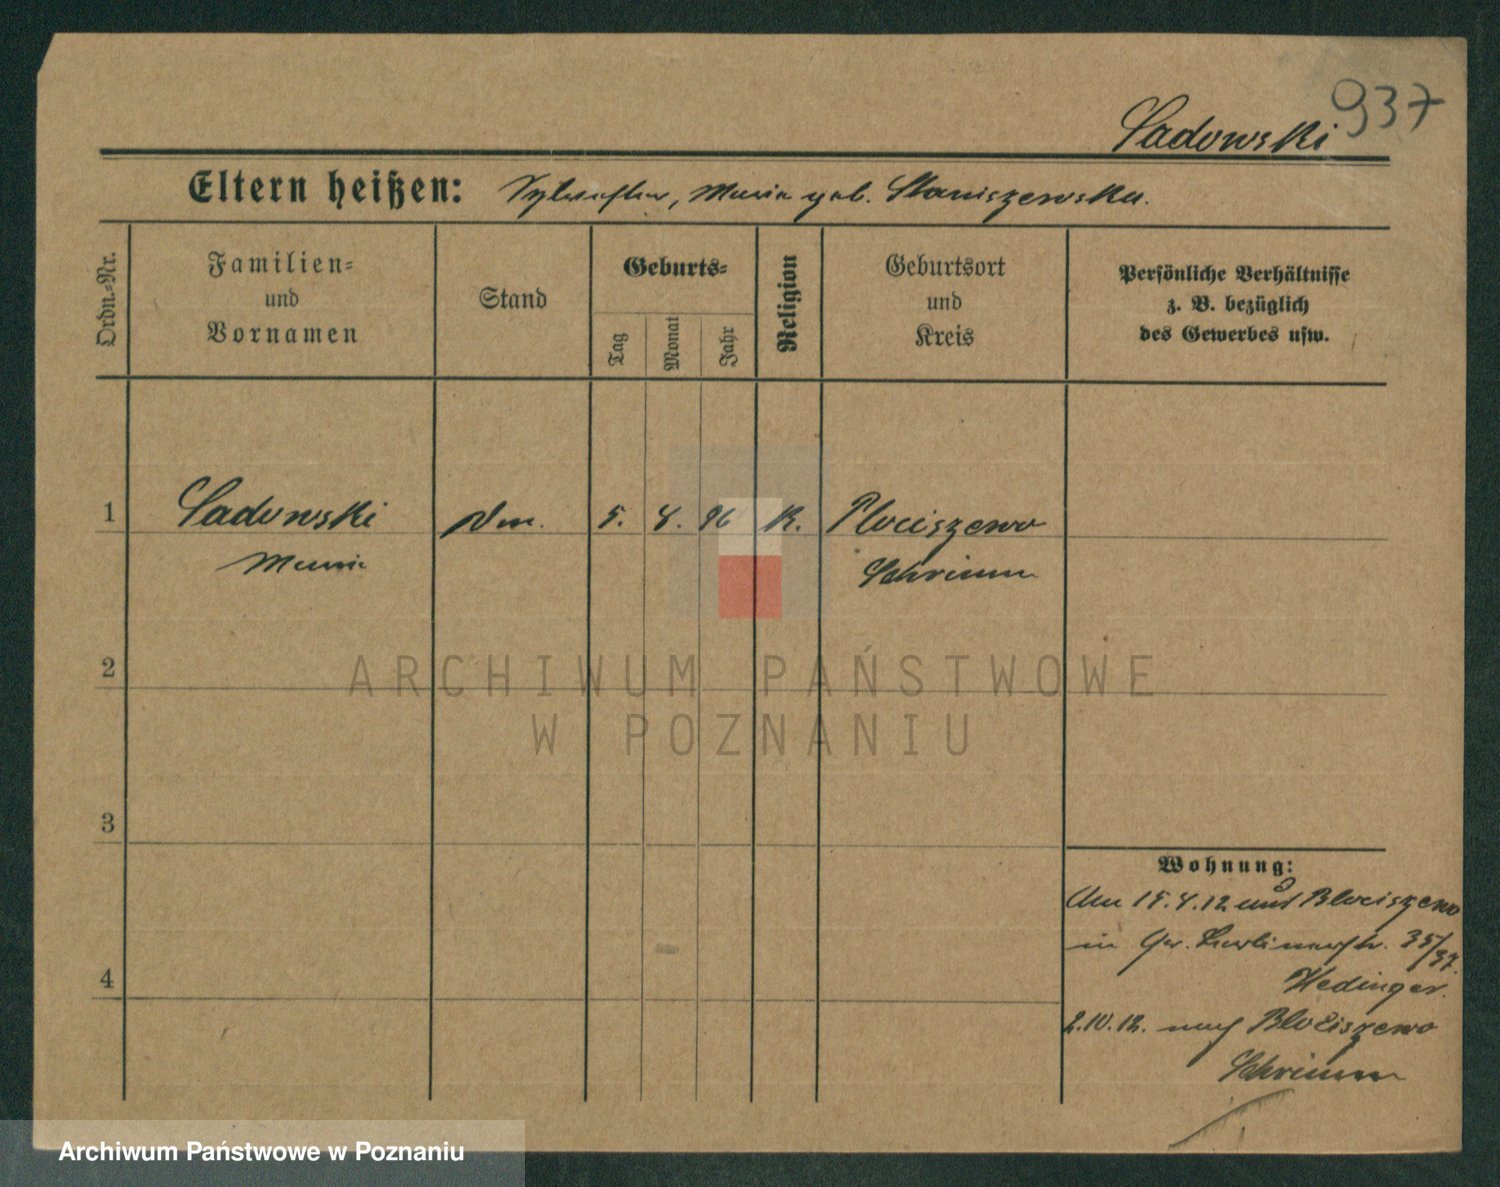 937
Sadowski
Eltern heißen: Sylvester, Marie geb. Staniszewska.
Ordn.-Nr.
Familien- und Vornamen
Stand
Geburts-
Tag
Monat
Jahr
Religion
Geburtsort und Kreis
Persönliche Verhältnisse
z. B. bezüglich
des Gewerbes usw.
1 Sadowski 5. 4. 96 K. Plociszewo
Marie Schrimm
2
ARCHIWUM PAŃSTWOWE
W POZNANIU
3
4
Wohnung:
Am 15.4.12 aus Blociszewo
in Gr. Berlinerstr. 35/37.
Hedinger.
2.10.12. nach Blociszewo
Schrimm
Archiwum Państwowe w Poznaniu